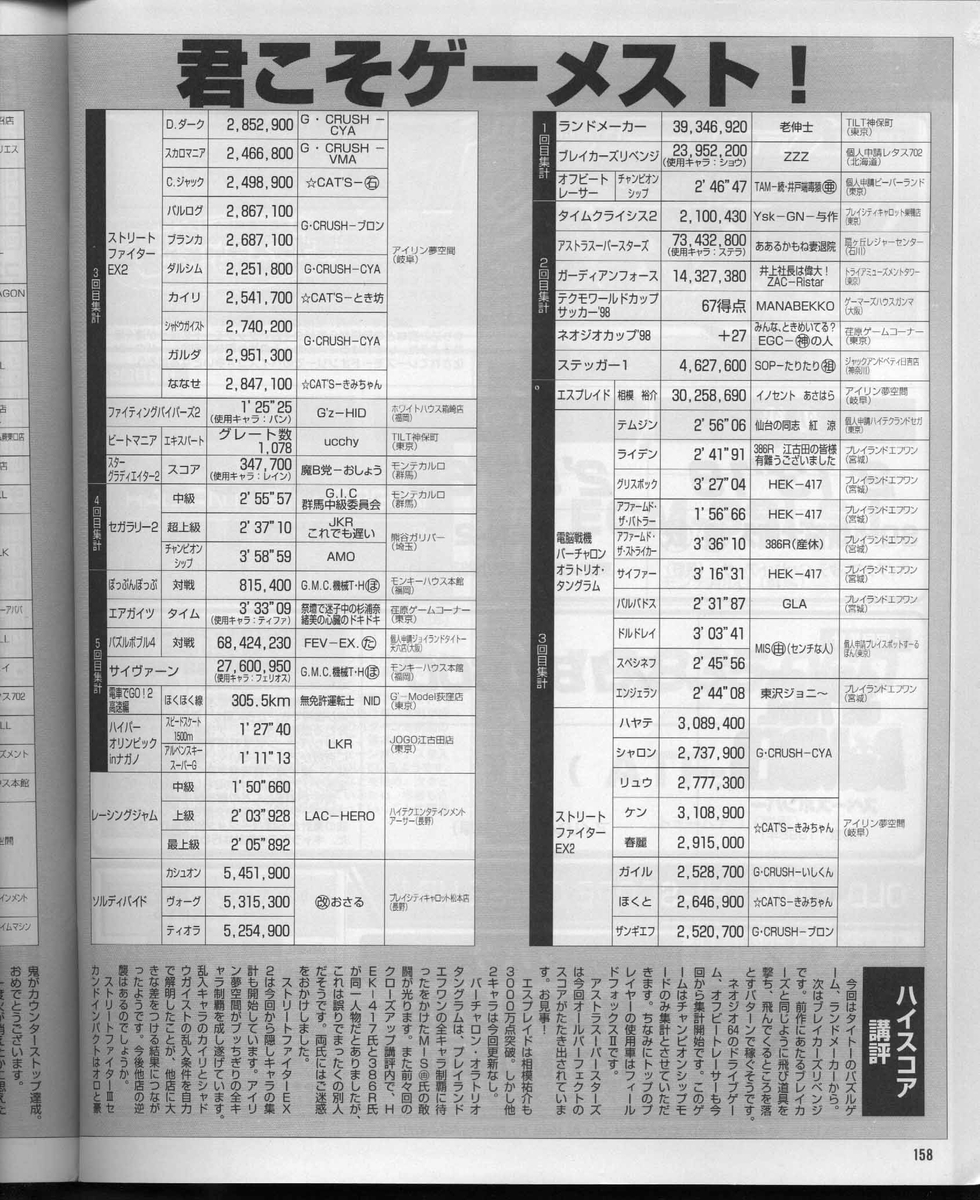 君こそゲーメスト！
1回目集計
ランドメーカー 39,346,920 老伸士 TILT神保町(東京)
ブレイカーズリベンジ 23,952,200(使用キャラ：ショウ) ZZZ 個人申請レタス702(北海道)
オフビートレーサー チャンピオンシップ 2'46"47 個人申請ビーバーランド(東京)
2回目集計
タイムクライシス2 2,100,430 Ysk－GN－与作 プレイシティキャロット巣鴨店(東京)
アストラスーパースターズ 73,432,800(使用キャラ：ステラ) ああるかもね妻退院 扇ヶ丘レジャーセンター(石川)
ガーディアンフォース 14,327,380 井上社長は偉大！ZAC－Ristar トライアミューズメントタワー(東京)
テクモワールドカップサッカー'98 67得点 MANABEKKO ゲーマーズハウスガンマ(大阪)
ネオジオカップ'98 ＋27 みんな、ときめいてる？EGC－㊙の人 荏原ゲームコーナー(東京)
ステッガー1 4,627,600 SOP－たりたり ジャックアンドベティ日吉店(神奈川)
3回目集計
エスプレイド 相模 裕介 30,258,690 イノセント あさはら アイリン夢空間(岐阜)
電脳戦機バーチャロンオラトリオ・タングラム
テムジン 2'56"06 仙台の同志 紅 涼 個人申請ハイテクランドセガ(東京)
ライデン 2'41"91 386R 江古田の皆様有難うございました プレイランドエフワン(宮城)
グリスボック 3'27"04 HEK－417 プレイランドエフワン(宮城)
アファームド・ザ・バトラー 1'56"66 HEK－417 プレイランドエフワン(宮城)
アファームド・ザ・ストライカー 3'36"10 386R(産休) プレイランドエフワン(宮城)
サイファー 3'16"31 HEK－417 プレイランドエフワン(宮城)
バルバドス 2'31"87 GLA プレイランドエフワン(宮城)
ドルドレイ 3'03"41 MIS㊌(センチな人) 個人申請プレイスポットすーるぽん(東京)
スペシネフ 2'45"56
エンジェラン 2'44"08 東沢ジョニ～ プレイランドエフワン(宮城)
ストリートファイターEX2
ハヤテ 3,089,400 G・CRUSH－CYA アイリン夢空間(岐阜)
シャロン 2,737,900
リュウ 2,777,300
ケン 3,108,900 ☆CAT'S－きみちゃん
春麗 2,915,000
ガイル 2,528,700 G・CRUSH－いしくん
ほくと 2,646,900 ☆CAT'S－きみちゃん
ザンギエフ 2,520,700 G・CRUSH－ブロン
3回目集計
ストリートファイターEX2
D.ダーク 2,852,900 G・CRUSH－CYA アイリン夢空間(岐阜)
スカロマニア 2,466,800 G・CRUSH－VMA
C.ジャック 2,498,900 ☆CAT'S－㊨
バルログ 2,867,100 G・CRUSH－ブロン
ブランカ 2,687,100
ダルシム 2,251,800 G・CRUSH－CYA
カイリ 2,541,700 ☆CAT'S－とき坊
シャドウガイスト 2,740,200 G・CRUSH－CYA
ガルダ 2,951,300
ななせ 2,847,100 ☆CAT'S－きみちゃん
ファイティングバイパーズ2 1'25"25(使用キャラ：バン) G'z－HID ホワイトハウス箱崎店(福岡)
ビートマニア エキスパート グレート数1,078 ucchy TILT神保町(東京)
スターグラディエイター2 スコア 347,700(使用キャラ：レイン) 魔B党－おしょう モンテカルロ(群馬)
4回目集計
セガラリー2
中級 2'55"57 G.I.C群馬中級委員会 モンテカルロ(群馬)
超上級 2'37"10 JKRこれでも遅い 熊谷ガリバー(埼玉)
チャンピオンシップ 3'58"59 AMO
5回目集計
ぽっぷんぽっぷ 対戦 815,400 G.M.C.機械T・H(ぽ) モンキーハウス本館(福岡)
エアガイツ タイム 3'33"09(使用キャラ：ティファ) 祭壇で迷子中の杉浦奈緒美の心臓のドキドキ 荏原ゲームコーナー(東京)
パズルボブル4 対戦 68,424,230 FEV－EX.(た) 個人申請ジョイランドタイトー天六店(大阪)
サイヴァーン 27,600,950(使用キャラ：フェリオス) G.M.C.機械T・H(ぽ) モンキーハウス本館(福岡)
電車でGO！2高速編 ほくほく線 305.5km 無免許運転士 NID G'－Model荻窪店(東京)
ハイパーオリンピックinナガノ
スピードスケート1500m 1'27"40 LKR JOGO江古田店(東京)
アルペンスキースーパーG 1'11"13
レーシングジャム
中級 1'50"660 LAC－HERO ハイテクエンタテインメントアーサー(長野)
上級 2'03"928
最上級 2'05"892
ソルディバイド
カシュオン 5,451,900 (改)おさる プレイシティキャロット松本店(長野)
ヴォーグ 5,315,300
ティオラ 5,254,900
ハイスコア講評
今回はタイトーのパズルゲ
ーム、ランドメーカーから。
次はブレイカーズリベンジ
です。前作にあたるブレイカ
ーズと同じように飛び道具を
撃ち、飛んでくるところを落
とすパターンで稼ぐそうです。
ネオジオ64のドライブゲー
ム、オフビートレーサーも今
回から集計開始です。このゲ
ームはチャンピオンシップモ
ードのみ集計とさせていただ
きます。ちなみにトップのプ
レイヤーの使用車はフィール
ドフォックスⅡです。
アストラスーパースターズ
は今回オールパーフェクトの
スコアがたたき出されていま
す。お見事！
エスプレイドは相模祐介も
3000万点突破。しかし他
2キャラは今回更新なし。
バーチャロン・オラトリオ
タングラムは、プレイランド
エフワンの全キャラ制覇に待
ったをかけたMIS㊌氏の敢
闘が光ります。また前々回の
クローズアップ講評内で、H
EK－417氏と386R氏
が同一人物だとありましたが、
これは誤りでまったくの別人
だそうです。両氏にはご迷惑
をおかけしました。
ストリートファイターEX
2は今回から隠しキャラの集
計も開始しています。アイリ
ン夢空間がブッちぎりの全キ
ャラ制覇を成し遂げています。
乱入キャラのカイリとシャド
ウガイストの乱入条件を自力
で解明したことが、他店に大
きな差をつける結果につなが
ったようです。今後他店の逆
襲はあるのでしょうか。
ストリートファイターⅢセ
カンドインパクトはオロと豪
鬼がカウンターストップ達成。
おめでとうございます。
158